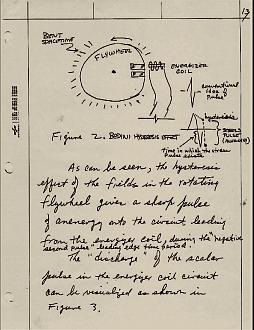 13
BENT
SPACETIME
FLYWHEEL
ENERGIZER
COIL
CONVENTIONAL
IDEA OF
PULSE
hysteresis
PULSE
Figure 2. BEDINI HYSTERESIS EFFECT
Time in which the stress
Pulse exists
As can be seen, the hysteresis
effect of the fields in the rotating
flywheel gives a sharp pulse
of anenergy onto the circuit leading
from the energizer coil, during the "negative
second pulse" leading edge time period.
The "discharge" of the scalar
pulse in the energizer coil circuit
can be visualized as shown in
Figure 3.